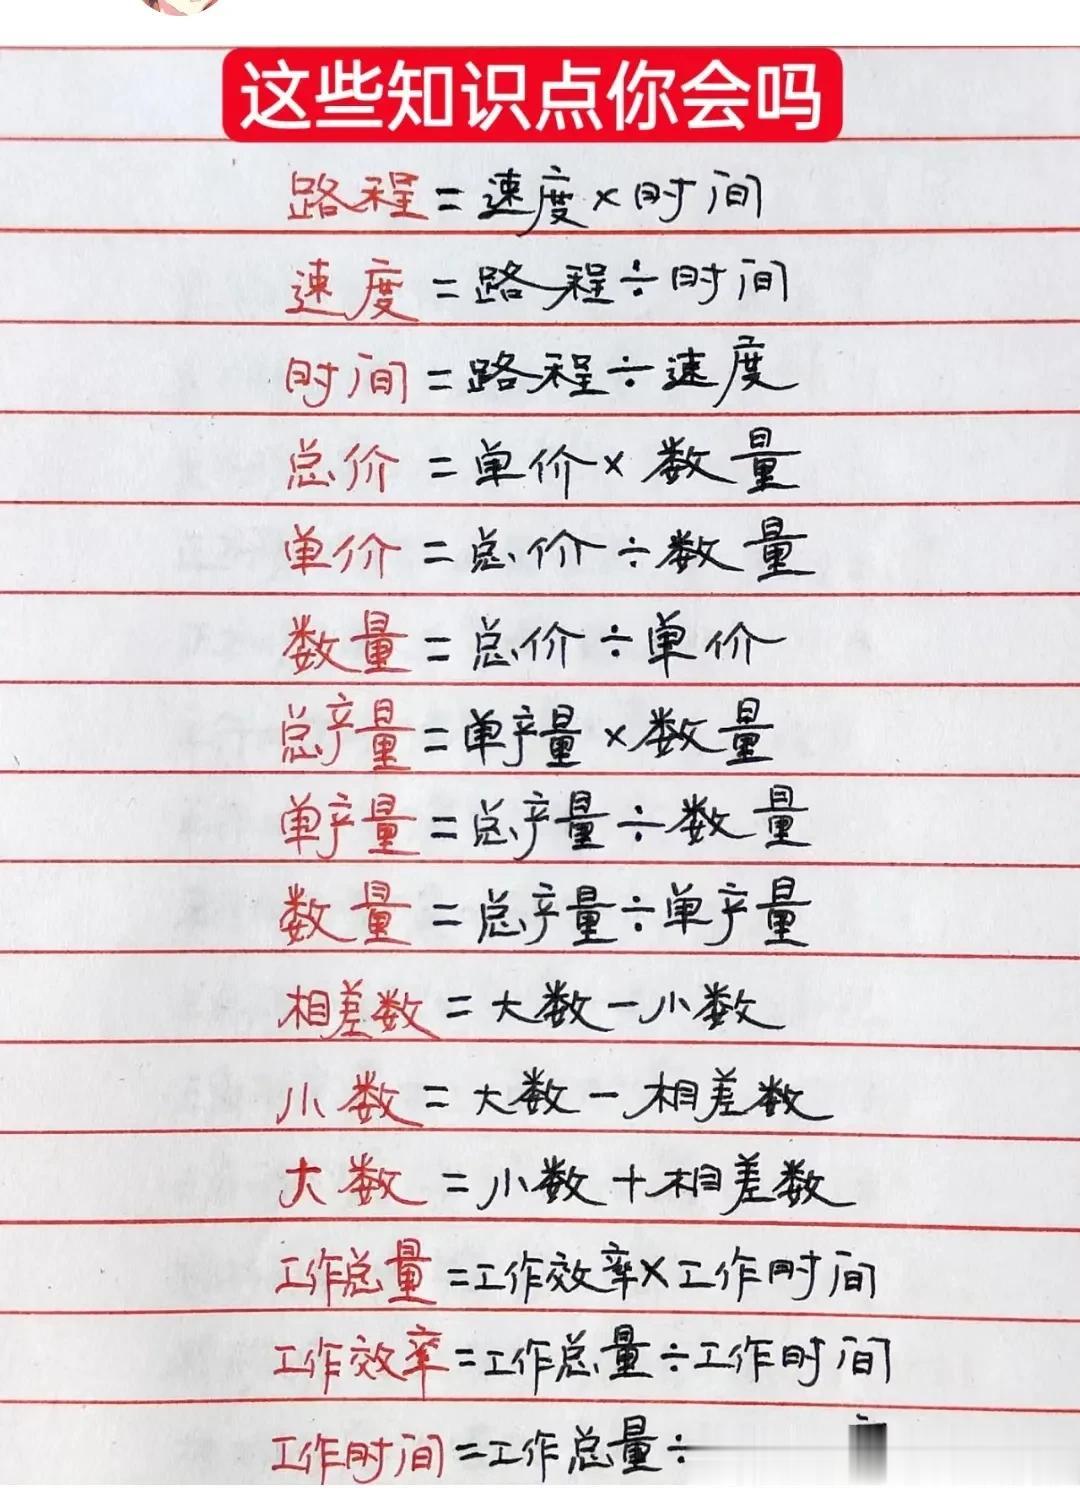 这些知识点你会吗
路程=速度×时间
速度=路程÷时间
时间=路程÷速度
总价=单价×数量
单价=总价÷数量
数量=总价÷单价
总产量=单产量×数量
单产量=总产量÷数量
数量=总产量÷单产量
相差数=大数-小数
小数=大数-相差数
大数=小数+相差数
工作总量=工作效率×工作时间
工作效率=工作总量÷工作时间
工作时间=工作总量÷